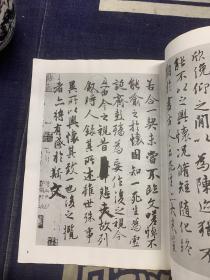 欣俛仰之間以為陳迹猶不
能不以之興懷況脩短隨化終
若合一契未嘗不臨文嗟悼不
能喻之於懷固知一死生為虛
誕齊彭殤為妄作後之視今
亦由今之視昔悲夫故列
敘時人錄其所述雖世殊事
異所以興懷其致一也後之攬
者亦將有感於斯文